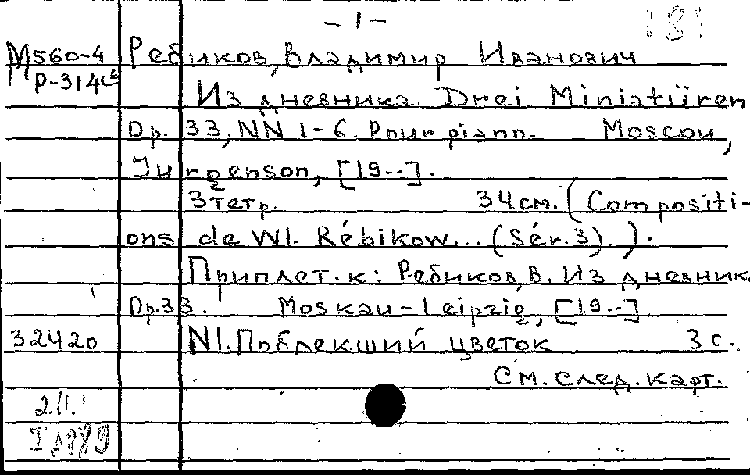 - 1 -
М560-4 Ребиков, Владимир Иванович
Р-314
Из дневника. Drei Miniatüren
Op. 33, NN 1-6. Pour piano. Moscou,
Jurgenson, [19--].
3 тетр. 34 см. (Compositi-
ons de Wl. Rébikow... (Sér. 3) ).
Приплет. к: Ребиков, В. Из дневника
Op. 33. Moskau-Leipzig, [19--]
32420 N1. Поблекший цветок 3 с.
См. след. карт.